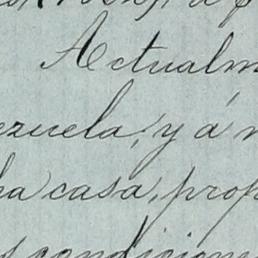 Actualm
ezuela, y á n
ha casa, prop
condicion